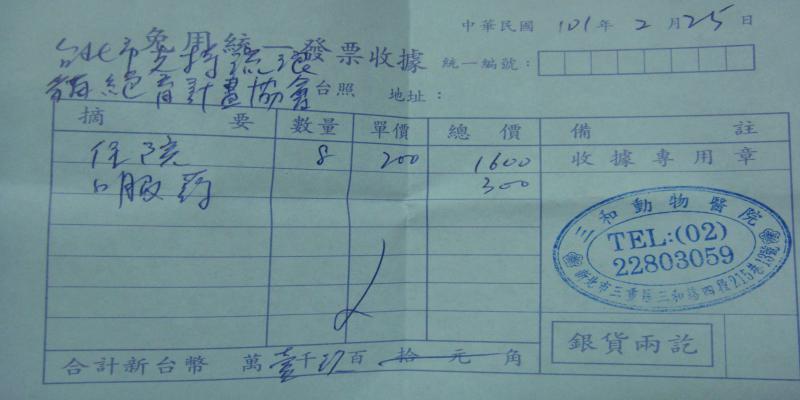 中華民國 101年 2月25日
免用統一發票收據
統一編號：
台北市支持流浪
貓絕育計畫協會台照 地址：
摘要 數量 單價 總價 備註
住院 8 200 1600 收據專用章
口服药 300
三和動物醫院
TEL:(02)
22803059
新北市三重區三和路四段215巷
合計新台幣 萬壹千玖百拾元角
銀貨兩訖